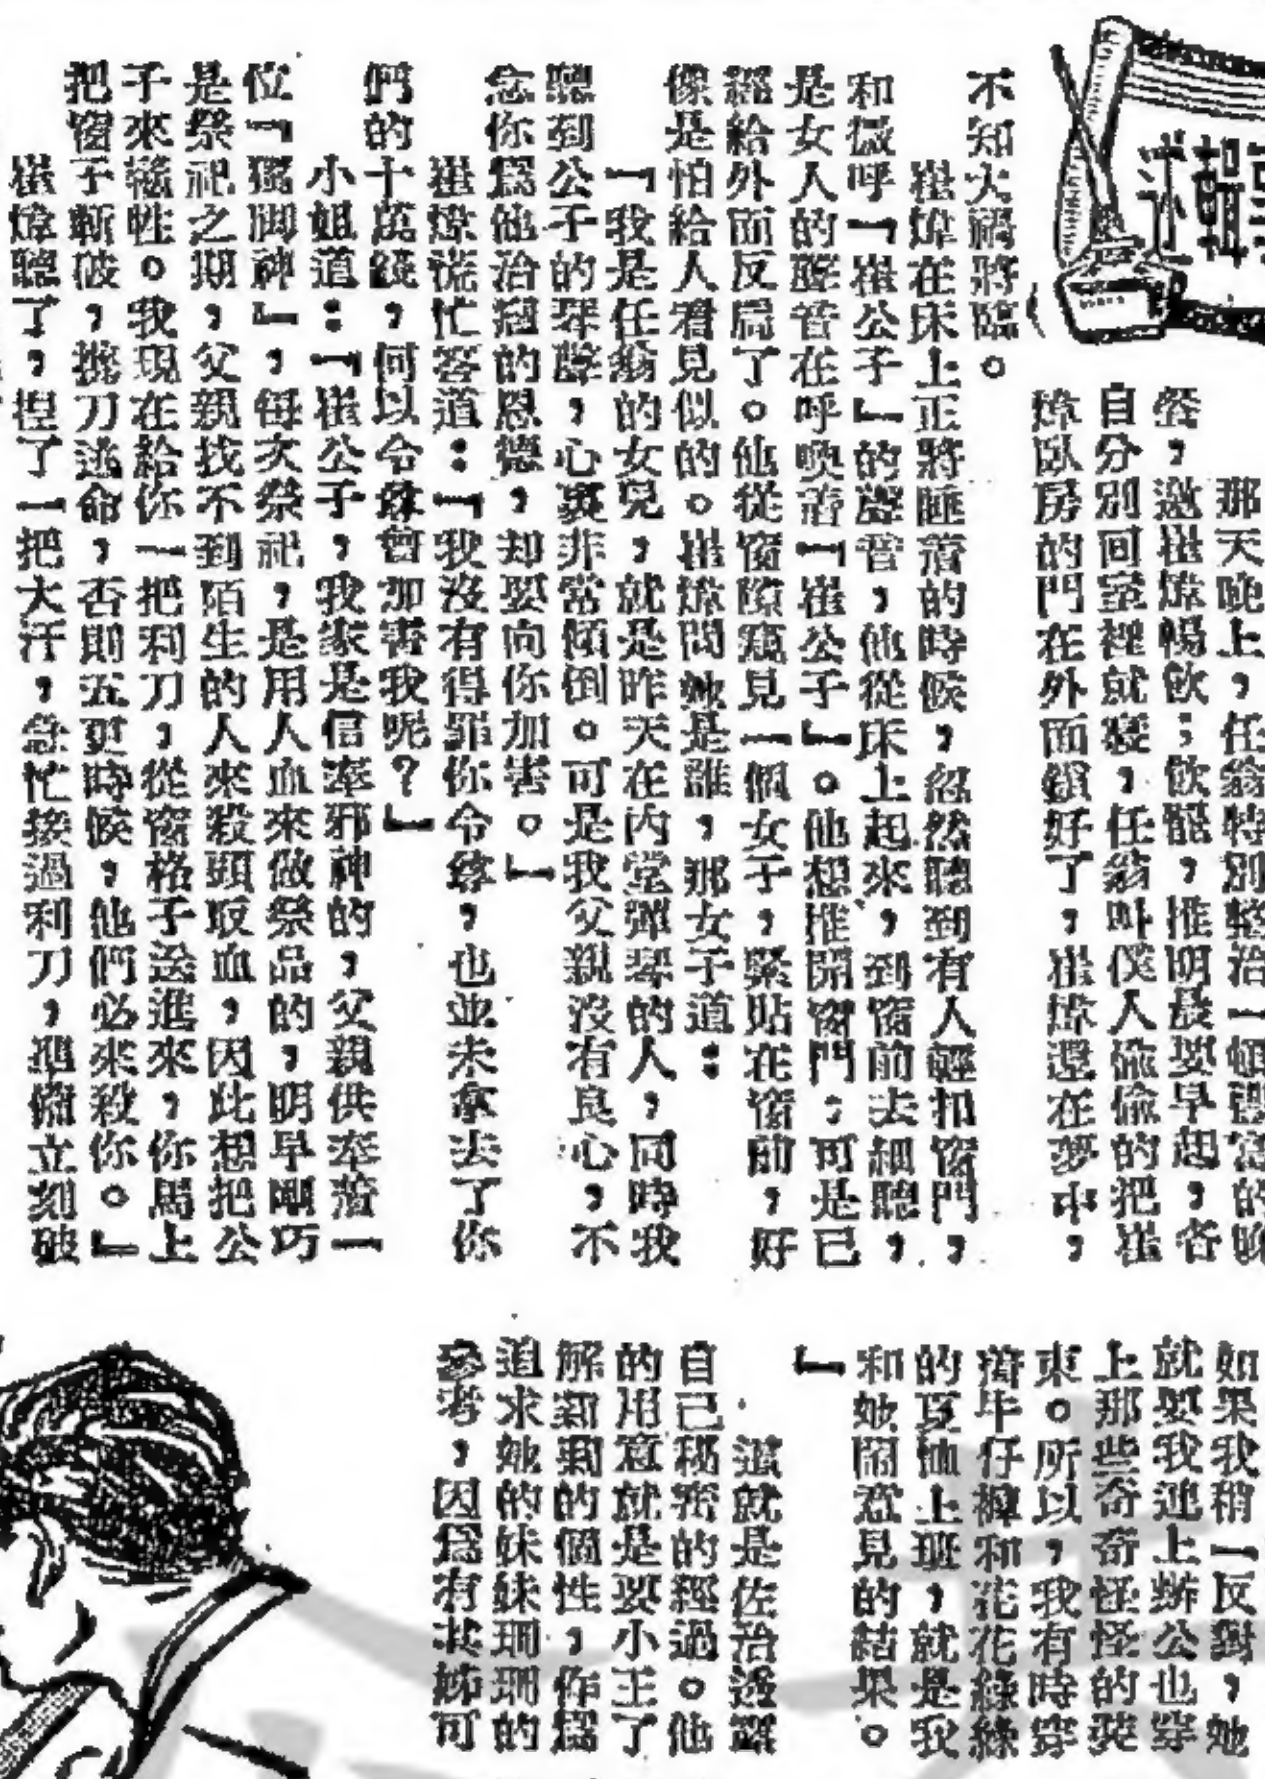 那天晚上，任翁特別整治一頓豐富的晚
餐，邀崔煒暢飲；飲罷，推明晨要早起，各
自分別回室裡就寢，任翁叫僕人偷偷的把崔
煒臥房的門在外面鎖好了，崔煒還在夢中，
不知大禍將臨。
崔煒在床上正將睡着的時候，忽然聽到有人輕扣窗門，
和微呼「崔公子」的聲音，他從床上起來，到窗前去細聽，
是女人的聲音在呼喚着「崔公子」。他想推開窗門；可是已
經給外面反扃了。他從窗隙窺見一個女子，緊貼在窗前，好
像是怕給人看見似的。崔煒問她是誰，那女子道：
「我是任翁的女兒，就是昨天在內堂彈琴的人，同時我
聽到公子的琴聲，心裏非常傾倒。可是我父親沒有良心，不
念你爲他治瘤的恩德，却要向你加害。」
崔煒慌忙答道：「我沒有得罪你令尊，也並未拿去了你
們的十萬錢，何以令尊會加害我呢？」
小姐道：「崔公子，我家是信奉邪神的，父親供奉着一
位「獨脚神」，每次祭祀，是用人血來做祭品的，明早剛巧
是祭祀之期，父親找不到陌生的人來殺頭取血，因此想把公
子來犧牲。我現在給你一把利刀，從窗格子送進來，你馬上
把窗子斬破，挑刀逃命，否則五更時候，他們必來殺你。」
崔煒聽了，揑了一把大汗，急忙接過利刀，準備立刻破
如果我稍一反對，她
就要我連上辦公也穿
上那些奇奇怪怪的裝
束。所以，我有時穿
着牛仔褲和花花綠綠
的夏恤上班，就是我
和她鬧意見的結果。
」
這就是佐治透露
自己秘密的經過。他
的用意就是要小王了
解莉莉的個性，作爲
追求她的妹妹珊珊的
參考，因爲有其姊可